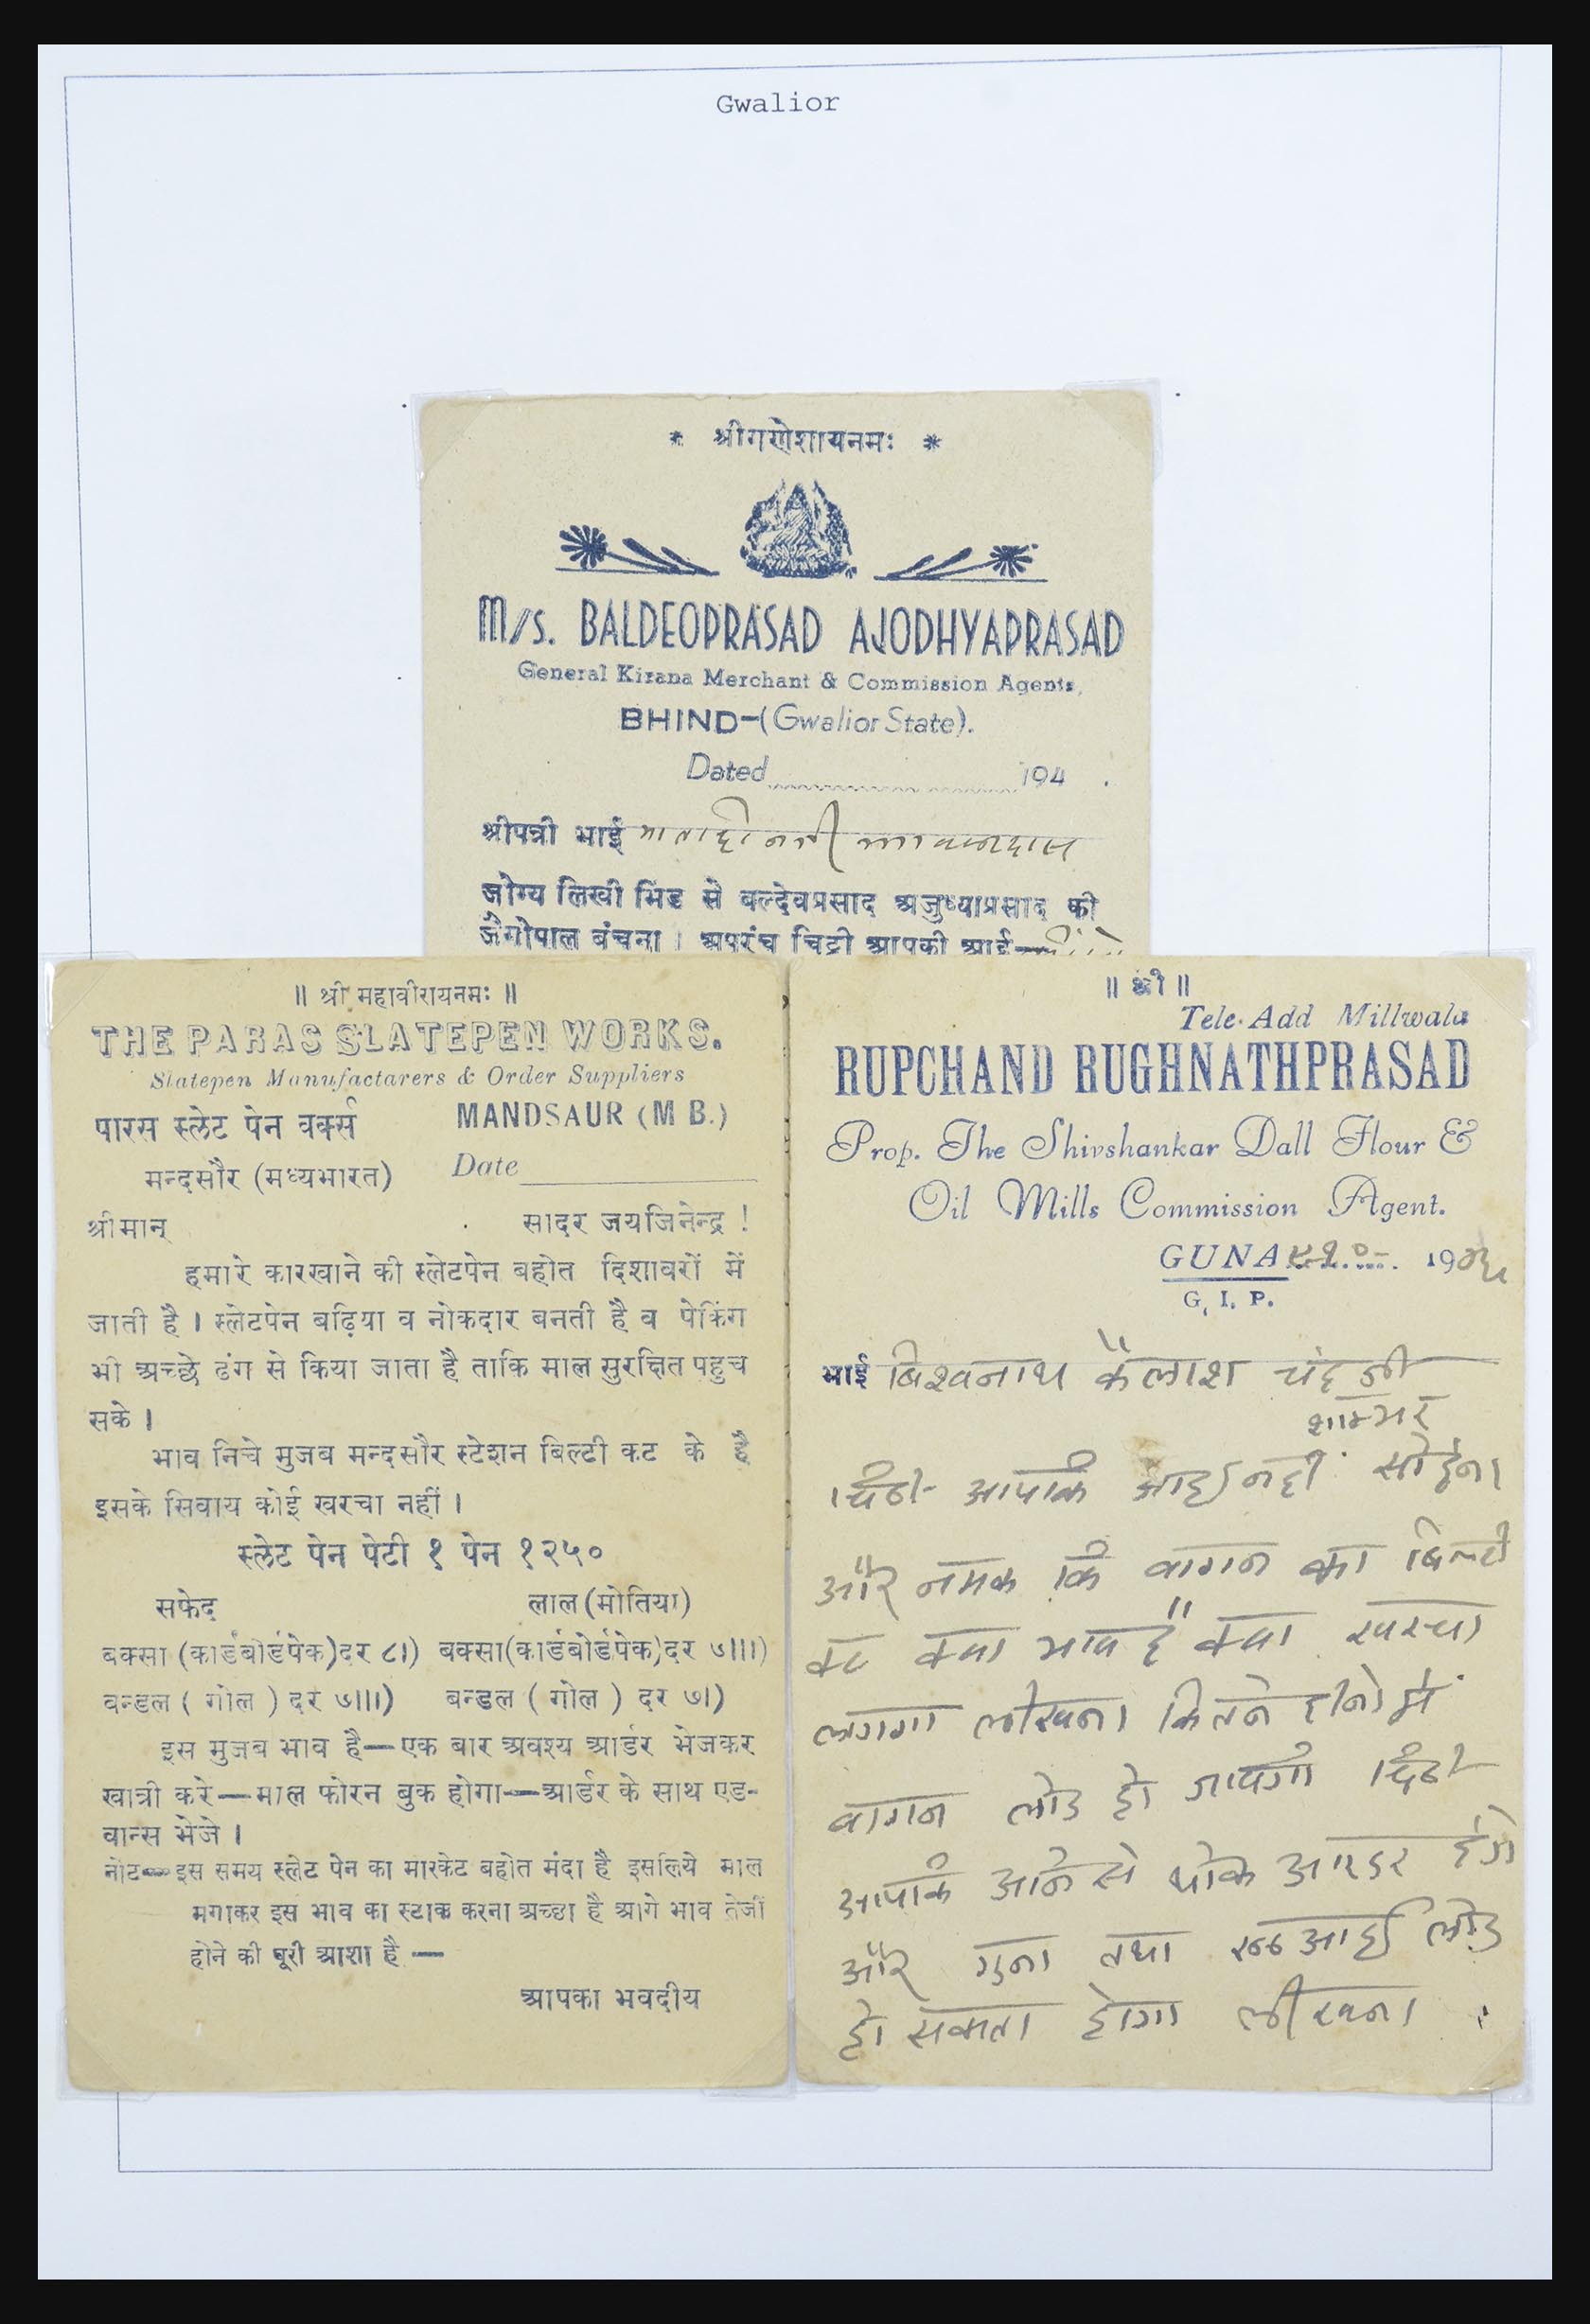 Gwalior
* श्रीगणेशायनमः *
M/s. BALDEOPRASAD AJODHYAPRASAD
General Kirana Merchant & Commission Agents,
BHIND-(Gwalior State).
Dated 194 .
श्रीपत्री भाई
जोग्य लिखी भिंड से बल्देवप्रसाद अजुध्याप्रसाद की
जैगोपाल बंचना । अपरंच चिट्ठी आपकी आई—
॥ श्री महावीरायनमः ॥
THE PARAS SLATEPEN WORKS.
Slatepen Manufactarers & Order Suppliers
पारस स्लेट पेन वर्क्स MANDSAUR (M B.)
मन्दसौर (मध्यभारत) Date
श्रीमान् सादर जयजिनेन्द्र !
हमारे कारखाने की स्लेटपेन बहोत दिशावरों में
जाती है । स्लेटपेन बढ़िया व नोकदार बनती है व पेकिंग
भी अच्छे ढंग से किया जाता है ताकि माल सुरक्षित पहुच
सके ।
भाव निचे मुजब मन्दसौर स्टेशन बिल्टी कट के है
इसके सिवाय कोई खरचा नहीं ।
स्लेट पेन पेटी १ पेन १२५०
सफेद लाल (मोतिया)
बक्सा (कार्डबोर्डपेक)दर ८।) बक्सा(कार्डबोर्डपेक)दर ७।॥)
बन्डल ( गोल ) दर ७।॥) बन्डल ( गोल ) दर ७।)
इस मुजब भाव है—एक बार अवश्य आर्डर भेजकर
खात्री करे—माल फोरन बुक होगा—आर्डर के साथ एड-
वान्स भेजे ।
नोट—इस समय स्लेट पेन का मारकेट बहोत मंदा है इसलिये माल
मगाकर इस भाव का स्टाक करना अच्छा है आगे भाव तेजी
होने की पूरी आशा है —
आपका भवदीय
॥ श्री ॥
Tele. Add Millwala
RUPCHAND RUGHNATHPRASAD
Prop. The Shivshankar Dall Flour &
Oil Mills Commission Agent.
GUNA 19
G. I. P.
भाई बिश्वनाथ कैलाश चंद्र जी
शाम्भर
चिठी आपकि आई नही सो देना
और नमक कि वागन का बिल्टी
कट क्या भाव है क्या खरचा
लगगा लीखना कितने दीनो में
वागन लोड हो जायगा चिठी
आपकि आने से आरडर देंगे
और गुना तथा लोड
हो सकता होगा लीखना